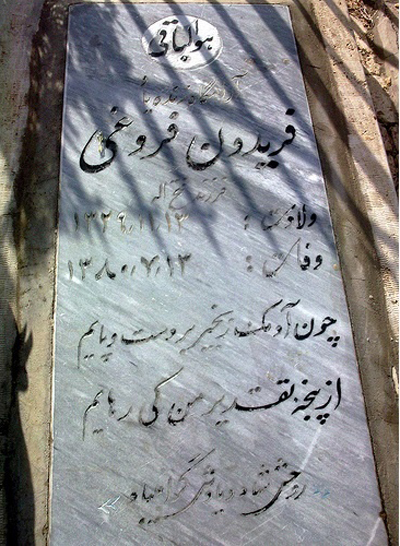 هوالباقی
آرامگاه زنده یاد
فریدون فروغی
فرزند فتح اله
ولادت : ۱۳۲۹,۱۱,۱۳
وفات : ۱۳۸۰,۷,۱۳
چون آدمک زنجیر بر دست و پایم
از پنجه تقدیر من کی رهایم
روحش شاد و یادش گرامیباد